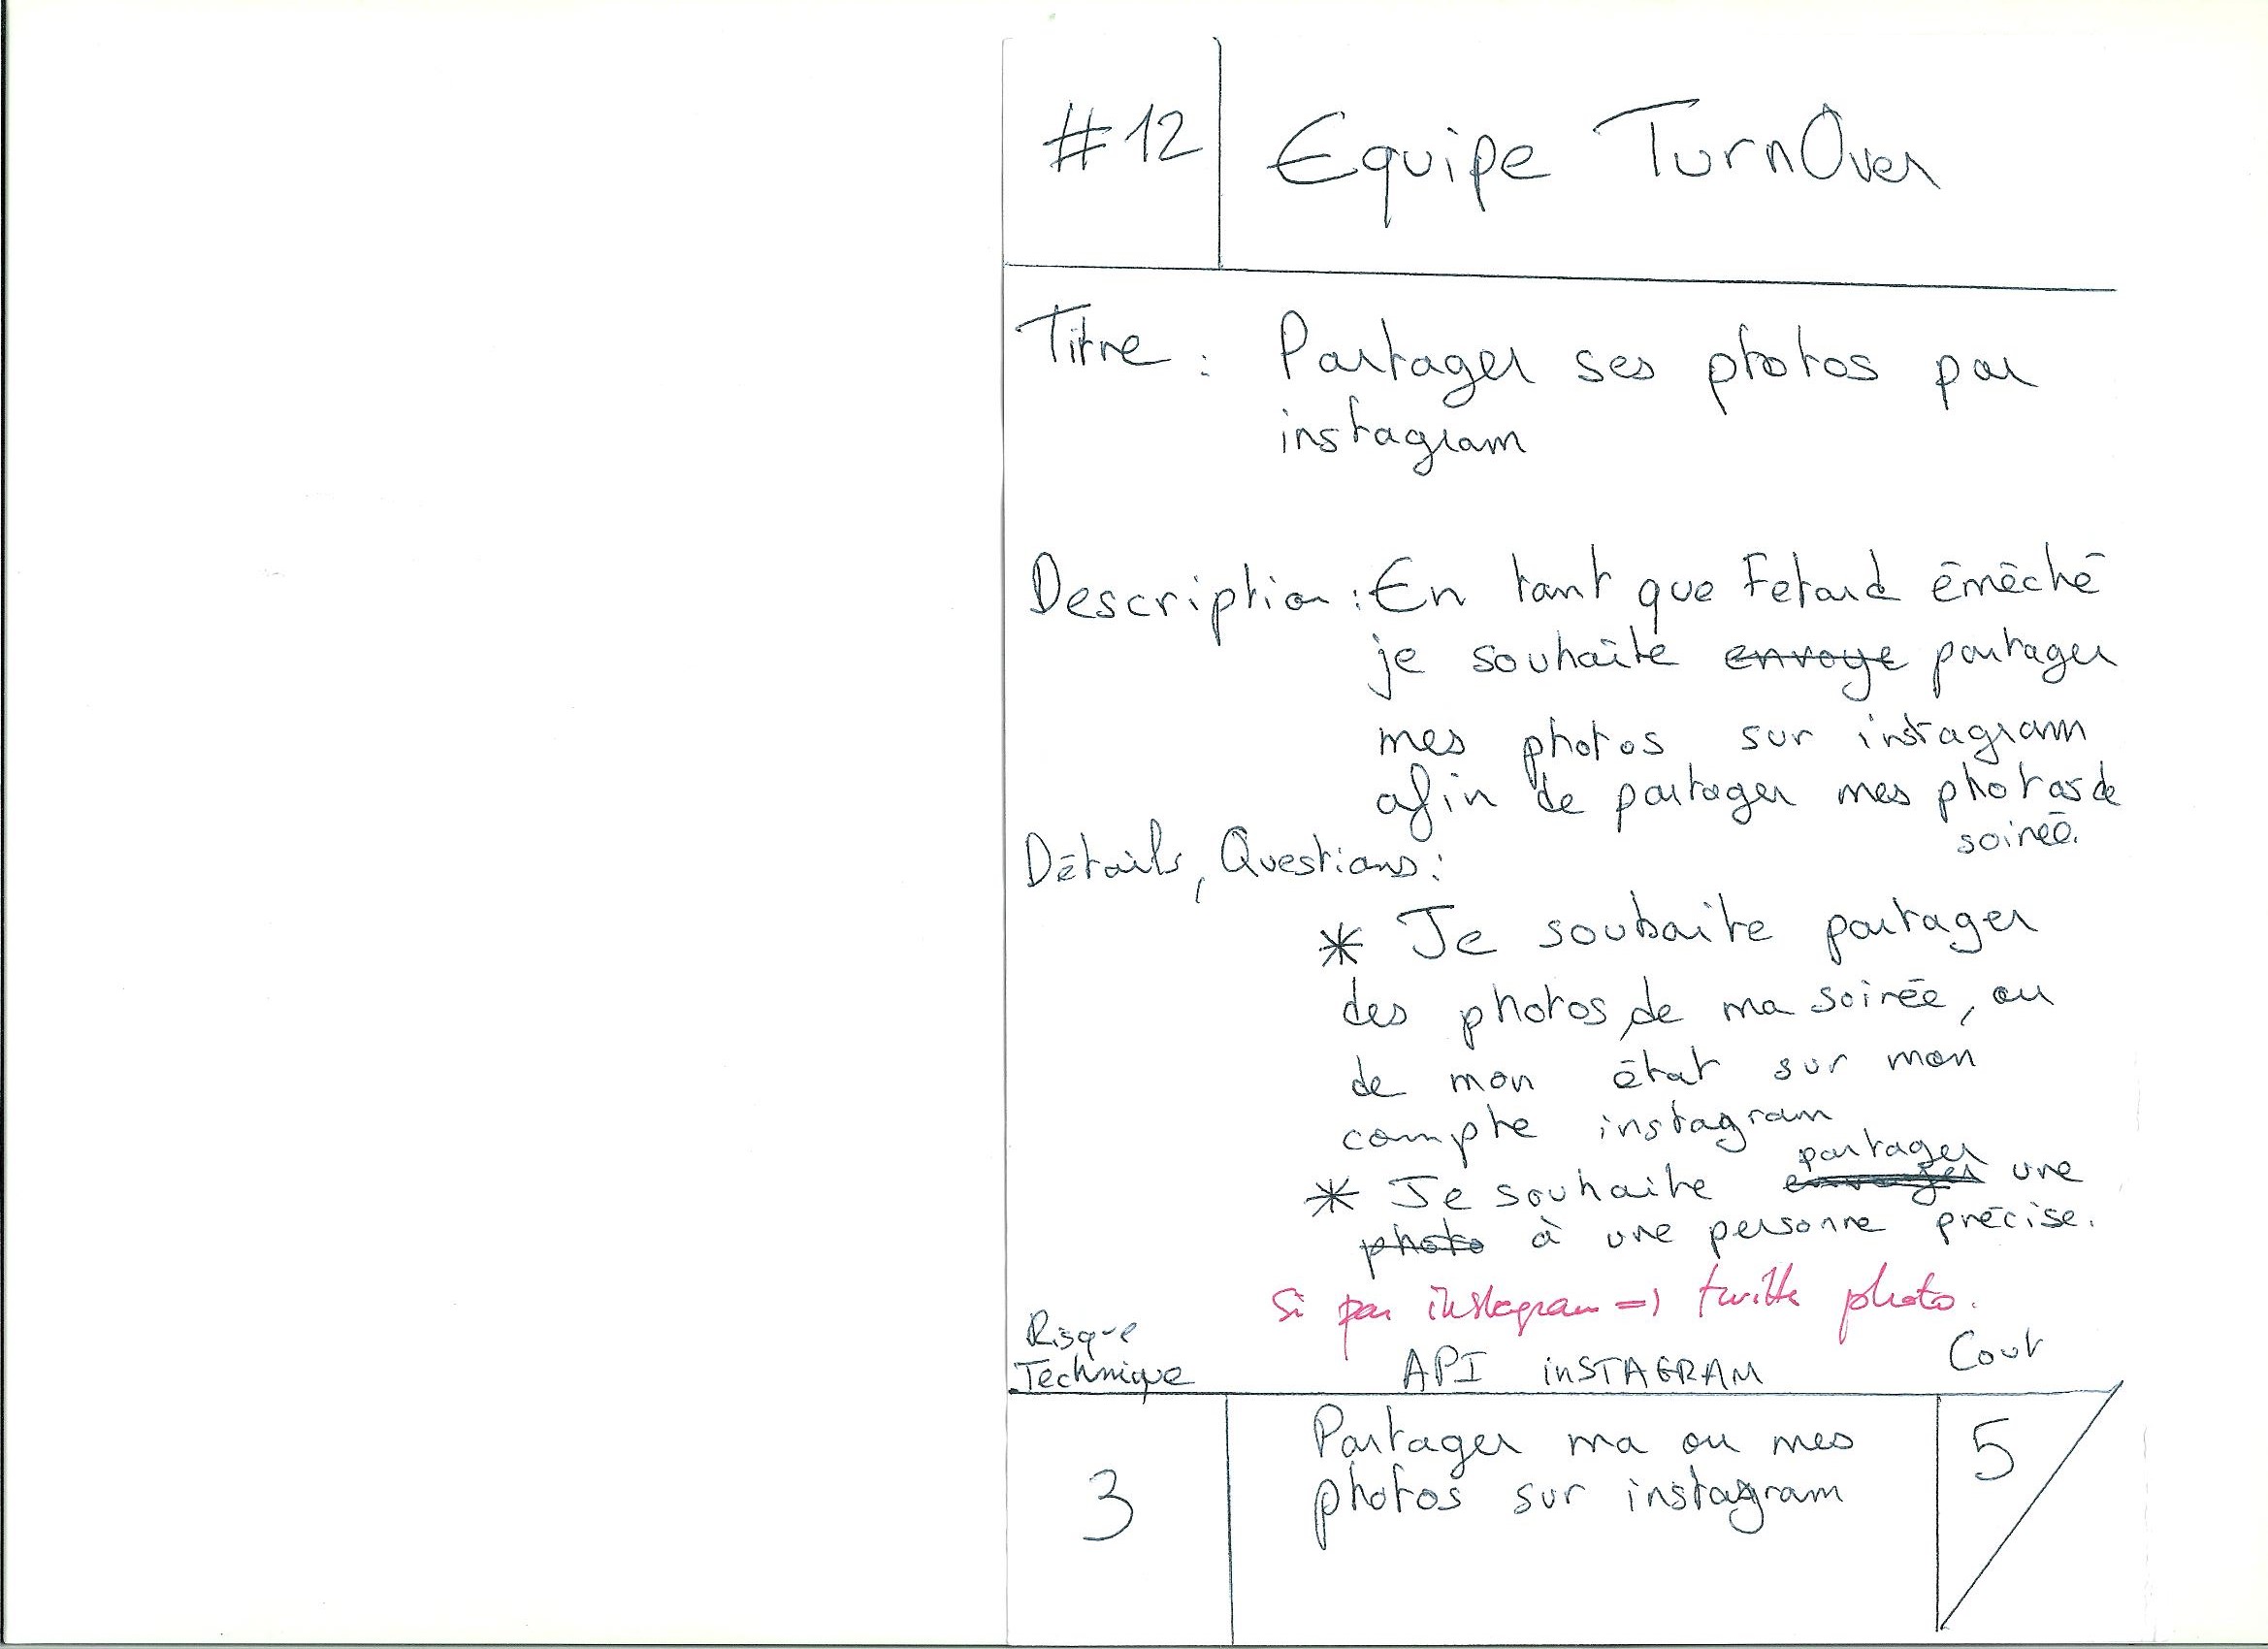 #12 Equipe TurnOver
Titre : Partager ses photos par
instagram
Description : En tant que Fetard éméché
je souhaite envoye partager
mes photos sur instagram
afin de partager mes photos de
soireé.
Détails, Questions :
* Je souhaite partager
des photos, de ma soirée, ou
de mon état sur mon
compte instagram
partager
* Je souhaite envoyer une
photo à une personne précise.
Si par instagram => twitte photo.
Risque
Technique API inSTAGRAM Cout
3 Partager ma ou mes 5
photos sur instagram